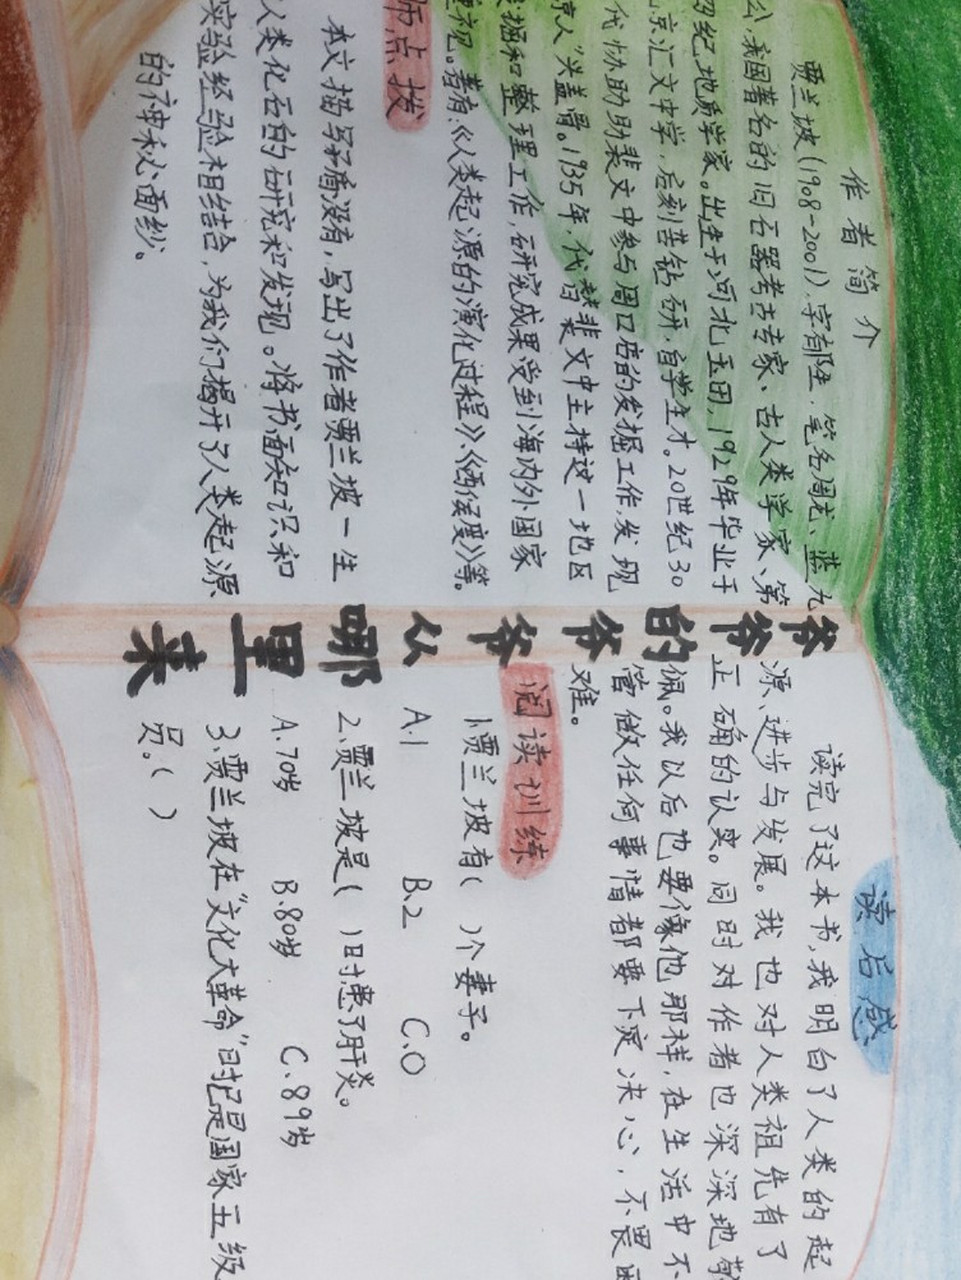 作者简介
贾兰坡(1908-2001),字郁生,笔名周龙、蓝九
公,我国著名的旧石器考古专家、古人类学家、第
四纪地质学家。出生于河北玉田,1929年毕业于
北京汇文中学,后刻苦钻研,自学生才。20世纪30
代协助助裴文中参与周口店的发掘工作,发现
京人”头盖骨。1935年,代替裴文中主持这一地区
发掘和整理工作,研究成果受到海内外国家
重视。著有:《人类起源的演化过程》《西侯度》等。
师点拨
本文描写矛盾没有,写出了作者贾兰坡一生
人类化石的研究和发现。将书面知识和
实验经验相结合,为我们揭开了人类起源
的神秘面纱。
爷爷的爷爷从哪里来
读后感
读完了这本书,我明白了人类的起
源、进步与发展。我也对人类祖先有了
正确的认实。同时对作者也深深地敬
佩。我以后也要像他那样,在生活中不
管做任何事情都要下定决心,不畏困
难。
阅读训练
1.贾兰坡有( )个妻子。
A.1 B.2 C.0
2.贾兰坡是( )时患了肝炎。
A.70岁 B.80岁 C.89岁
3.贾兰坡在“文化大革命”时是国家五级
员。( )